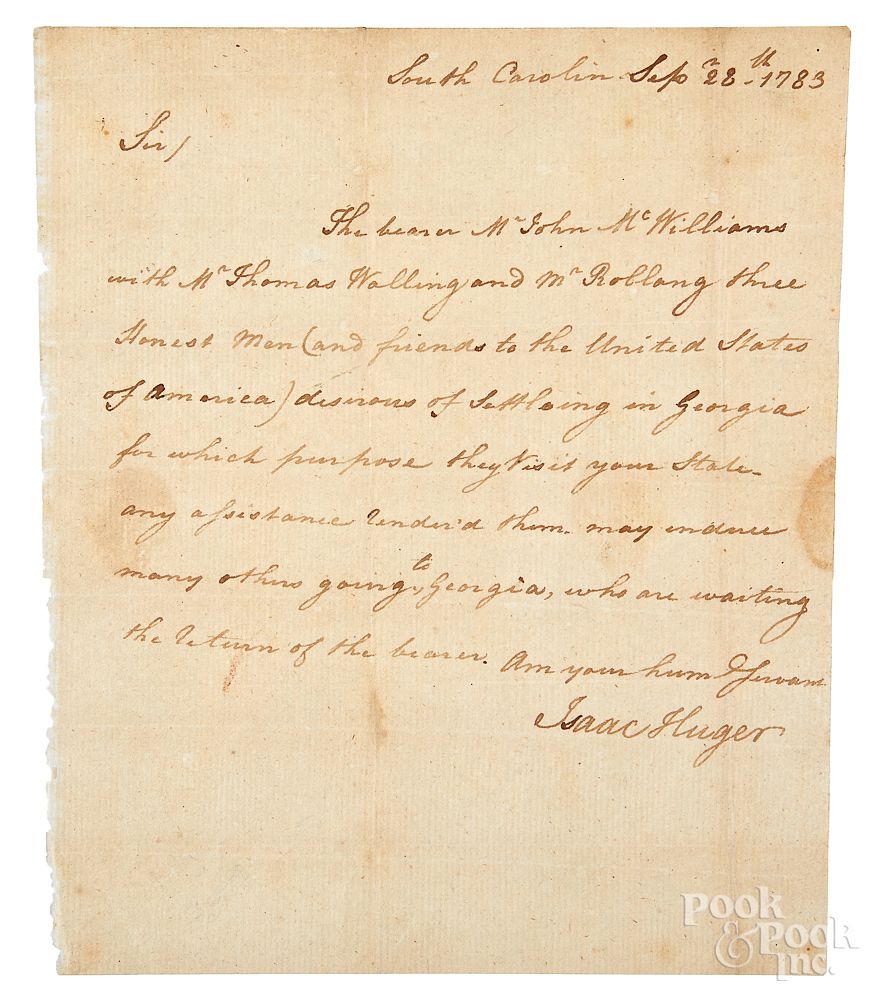 South Carolin Sepr 28th 1783
Sir/
The bearer Mr John McWilliams
with Mr Thomas Walling and Mr Roblang three
Honest Men (and friends to the United States
of America) desirous of Settleing in Georgia
for which purpose they Visit your State-
any assistance Render'd them may induce
many others going to Georgia, who are waiting
the return of the bearer. Am your humb Servant
Isaac Huger
POOK
& POOK
INC.